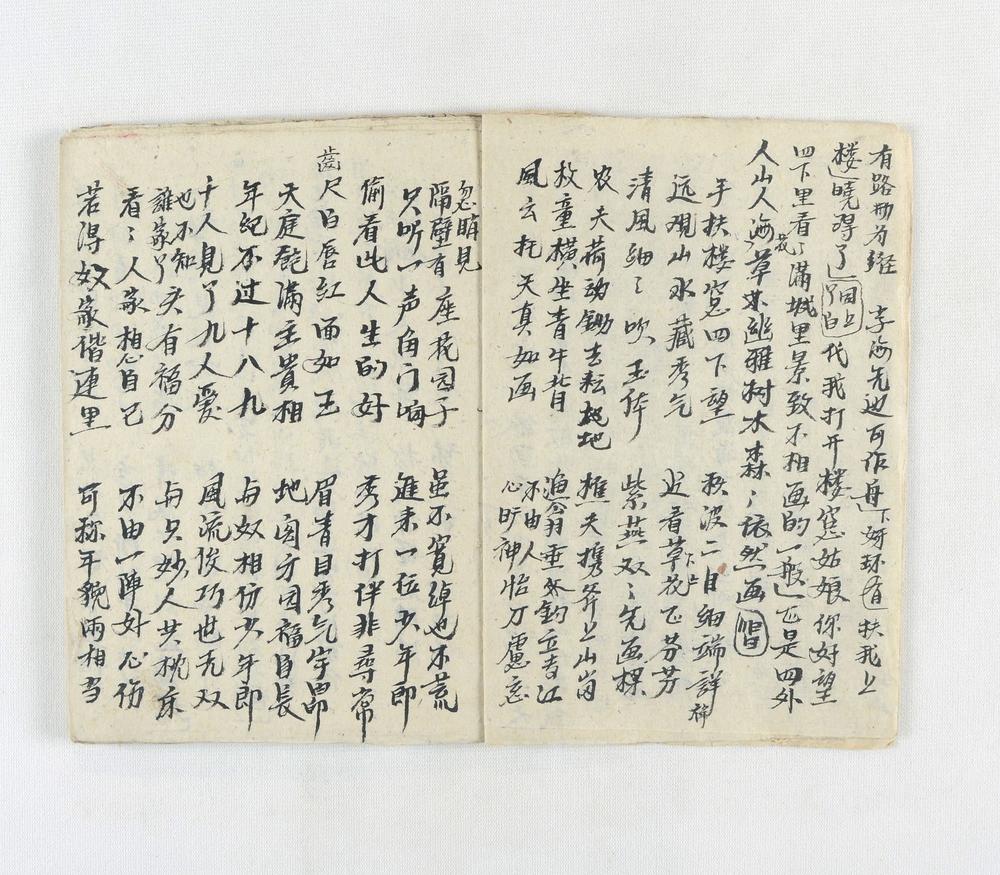 有路册为径 李海无边可作舟」下好环有」扶我上
楼」晓得了」丫白上白代我打开楼窓姑娘你好望
四下里看」满城里景致不相画的一般」正是四外
人山人海花草木幽雅树木森〻依然画唱
手扶楼窓四下望 秋波二目细端詳
远观山水藏秀气 近看草花正芬芳
清风细〻吹玉体 紫燕双〻先画樑
农夫荷动锄去耘地 樵夫携斧上山岗
放童横坐青牛背 渔翁垂钓立青江
风云托天真如画 不由人心旷神怡万慮忘
忽睄見隔壁有座花园子 虽不寛绰也不荒
只听一声角门响 進来一位少年郎
偷看此人生的好 秀才打伴非尋常
齒尺白唇红面如玉 眉青目秀气宇昂
天庭飽满主貴相 地阁方园福自長
年纪不过十八九 与奴相仿少年郎
十人見了九人爱 風流俊巧世无双
也不知誰家丫头有福分 与只妙人共枕床
看〻人家相心自己 不由一陣好心伤
若得奴家偕連里 可称年貌両相当